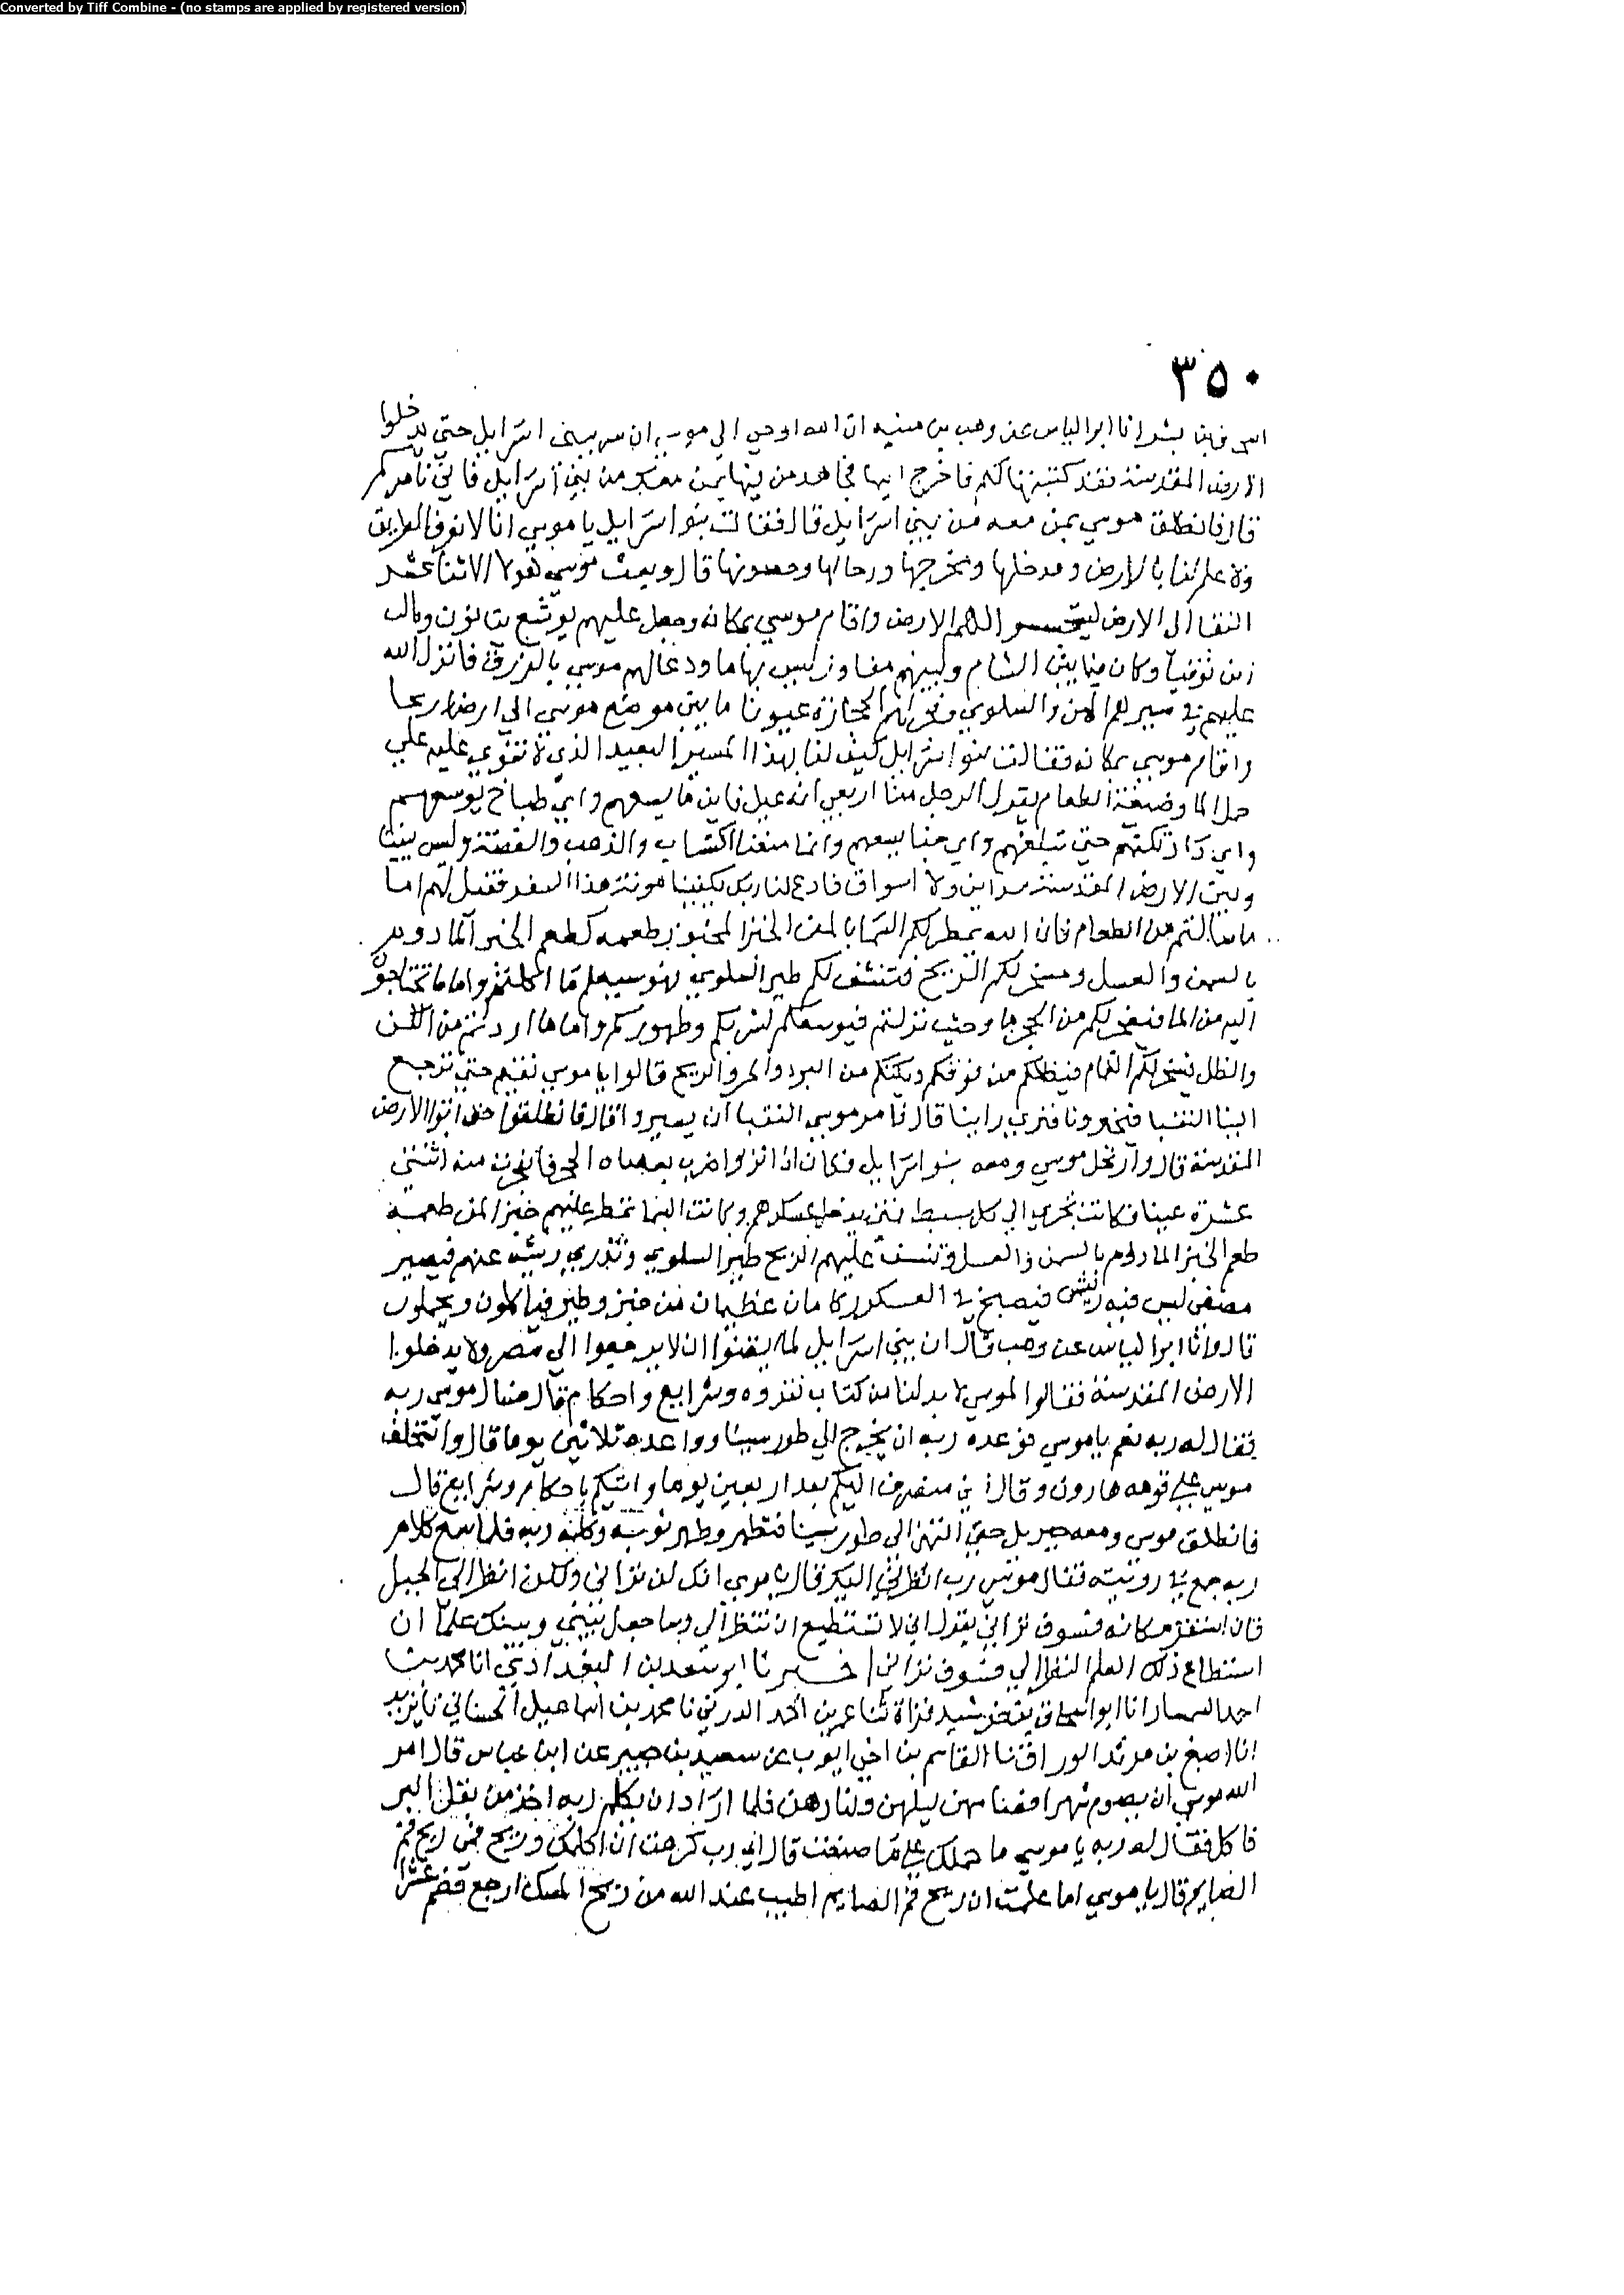 Converted by Tiff Combine - (no stamps are applied by registered version)
٣٥٠
بن بشر انا ابو الياس عن وهب بن منبه ان الله اوحى الي موسى ان سر ببني اسرايل حتي يدخلوا
الارض المقدسة فقد كتبتها لكم فاخرج اليها فجاهد من فيها بمن معك من بني اسرايل فاني ناصركم
قال فانطلق موسي بمن معه من بني اسرايل قال فقالت بنو اسرايل يا موسي انا لا نعرف الطريق
ولا علم لنا بالارض ومدخلها ومخرجها ورجالها وحصونها قال وبعث موسي هولا الاثنا عشر
النقبا الي الارض ليتجسسوا لهم الارض واقام موسي بمكانه وجعل عليهم يوشع بن نون وكالب
بن يوفنيا وكان فيما بين الشام وبينهم مفاوز ليس بها ما ودعا لهم موسي بالرزق فانزل الله
عليهم في مسيرهم المن والسلوي وفجر لهم الحجارة عيونا ما بين موضع موسي الي ارض اريحا
واقام موسي بمكانه فقالت بنو اسرايل كيف لنا بهذا المسير البعيد الذي لا نقوي عليه علي
حمل الما وصنعة الطعام يقول الرجل منا اربعين انه عيل فاين ما يسعهم واي طباخ يوسعهم
واي زاد نكتهم حتي تبلغهم واي خبا يسعهم وانما متعنا الثياب والذهب والفضة وليس بيننا
وبين الارض المقدسة مداين ولا اسواق فادع لنا ربك يكفينا مونة هذا السفر فقيل لهم اما
ما سالتم من الطعام فان الله يمطر لكم السما بالمن الخبز المخبوز يطعمه كطعم الخبز المادوم
بالسمن والعسل ومسخر لكم الريح فتنشف لكم طير السلوي فهو سيعلم ما اكلتم واما ما تحتاجون
اليه من الما فيفجر لكم من الحجر ما وحيث نزلتم فيوسعكم لشربكم وطهوركم واما ما اردتم من الكن
والظل فيسخر لكم الغمام فيظلكم من فوقكم ويكنكم من البرد والحر والريح قالوا يا موسي نقيم حتي ترجع
الينا النقبا فيخبرونا فنري راينا قال فامر موسي النقبا ان يسيروا قال فانطلقوا حتي اتوا الارض
المقدسة قال وارتحل موسي ومعه بنو اسرايل فكان اذا نزلوا ضرب بعصاه الحجر فانفجرت منه اثنتي
عشرة عينا فكانت تجري الي كل سبط عين يدخل عسكرهم وكانت السما تمطر عليهم خبز المن طعمه
طعم الخبز المادوم بالسمن والعسل وتنسف عليهم الريح طير السلوي وتذري ريشه عنهم فيصير
مصفي ليس فيه ريش فيصبح في العسكر ركامان عظيمان من خبز وطير فياكلون ويحملون
قال وانا ابو الياس عن وهب قال ان بني اسرايل لما ايقنوا ان لا يرجعوا الي مصر ولا يدخلوا
الارض المقدسة فقالوا لموسي لا بد لنا من كتاب نقروه وشرايع واحكام قال فسال موسي ربه
فقال له ربه نعم يا موسي فوعده ربه ان يخرج الي طور سينا وواعده ثلاثين يوما قال واستخلف
موسي علي قومه هارون وقال اني منصرف اليكم بعد اربعين يوما واتيكم باحكام وشرايع قال
فانطلق موسي ومعه جبريل حتي انتهي الي طور سينا فتطهر وطهر ثوبه وكلمه ربه فلما سمع كلام
ربه طمع في رويته فقال موسي رب انظرني انظر اليك قال يا موسي انك لن تراني ولكن انظر الي الجبل
فان استقر مكانه فسوف تراني يقول اني لا تستطيع ان تنظر الي وبما جعل بيني وبينك علما ان
استطاع ذلك العلم النظر الي فسوف تراني اخبرنا ابو سعد بن البغدادي انا محمد بن
احمد السمسار انا ابو اسحاق بن خرشيد قراة ثنا عمر بن احمد الدربي نا محمد بن اسماعيل الحساني نا يزيد
انا اصبغ بن مرثد الوراق ثنا القاسم بن اخي ايوب عن سعيد بن جبير عن ابن عباس قال امر
الله موسي ان يصوم شهرا فصامهن ليلهن ونهارهن فلما اراد ان يكلم ربه اخذ من بقل البر
فاكل فقال له ربه يا موسي ما حملك علي ما صنعت قال اي رب كرهت ان اكلمك وريح فمي ريح فم
الصايم قال يا موسي اما علمت ان ريح فم الصايم اطيب عند الله من ريح المسك ارجع فصم عشرا